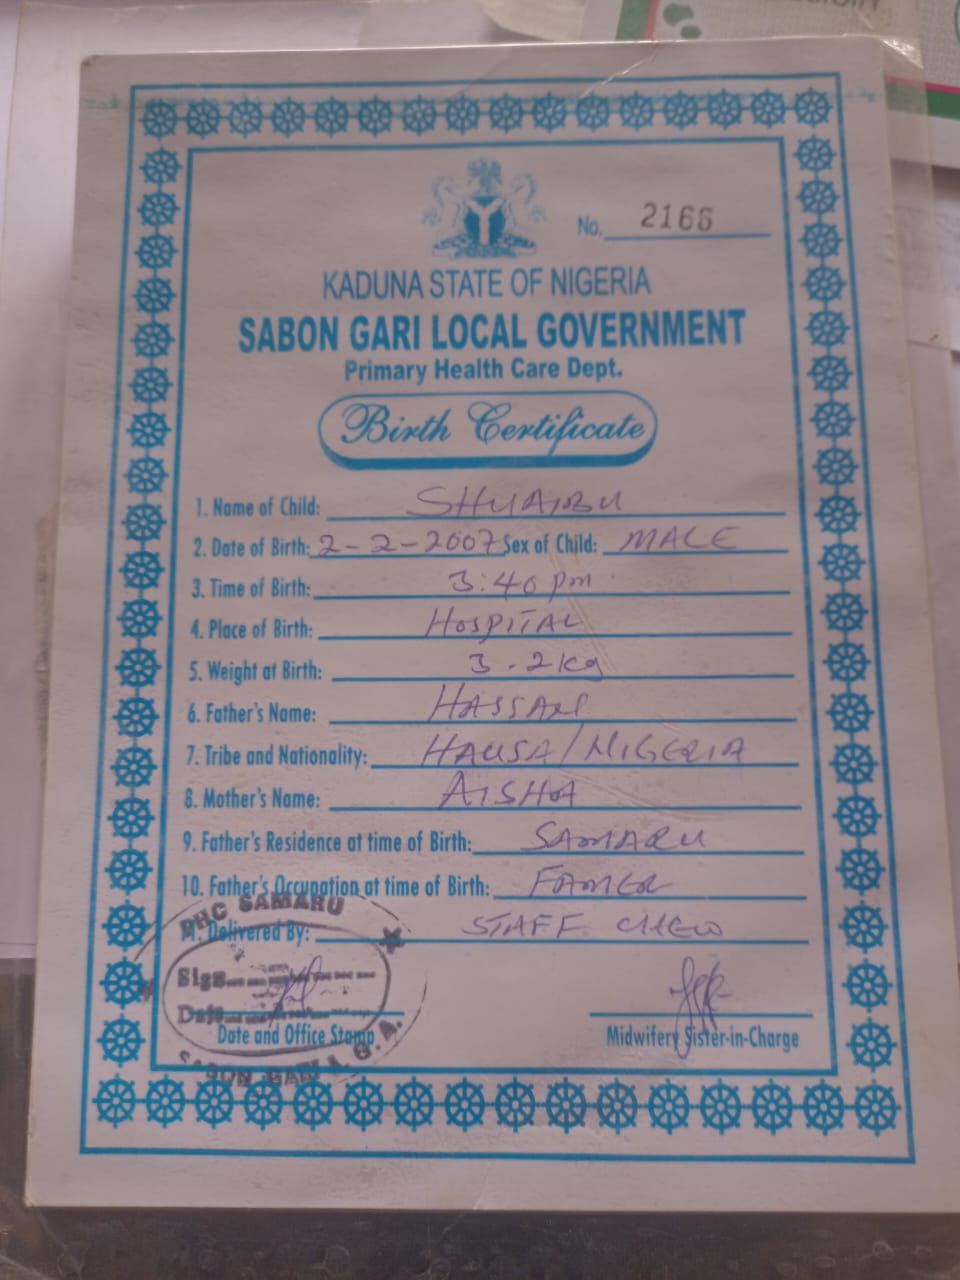 No. 2166
KADUNA STATE OF NIGERIA
SABON GARI LOCAL GOVERNMENT
Primary Health Care Dept.
Birth Certificate
1. Name of Child: SHUAIBU
2. Date of Birth: 2-2-2007 Sex of Child: MALE
3. Time of Birth: 3:40 pm
4. Place of Birth: HOSPITAL
5. Weight at Birth: 3.2kg
6. Father's Name: HASSAN
7. Tribe and Nationality: HAUSA/NIGERIA
8. Mother's Name: AISHA
9. Father's Residence at time of Birth: SAMARU
10. Father's Occupation at time of Birth: FAMER
11. Delivered By: STAFF CHEW
PHC SAMARU
Sign
Date
SABON GARI L.G.A.
Date and Office Stamp
Midwifery Sister-in-Charge